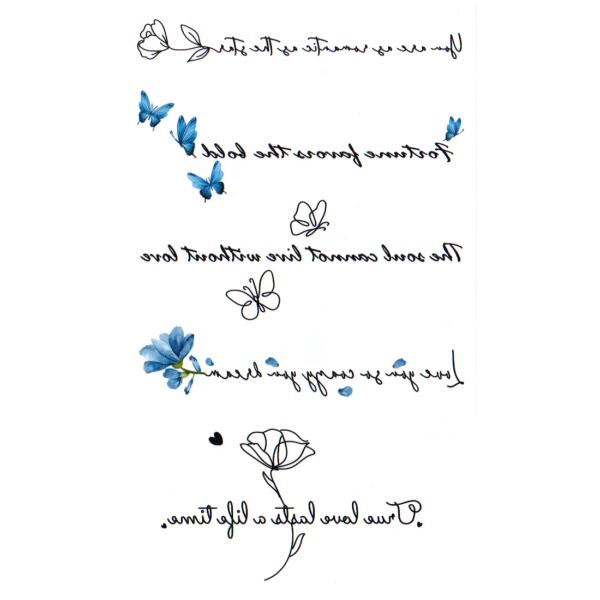 You are as romantic as the star
Fortune favors the bold
The soul cannot live without love
Love you so coazy you dream
True love lasts a life time.